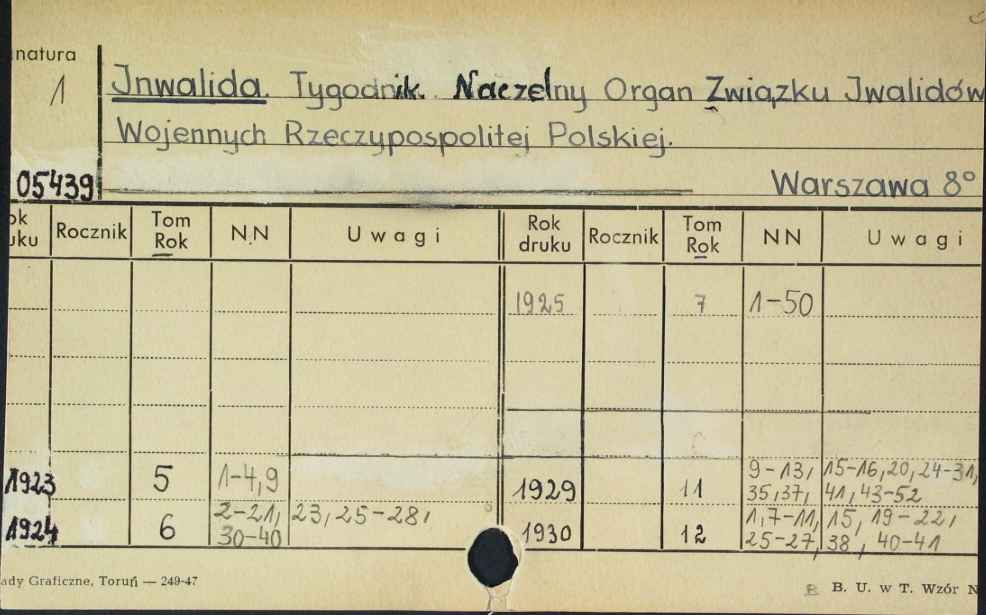 natura
1 Jnwalida. Tygodnik. Naczelny Organ Związku Jwalidów
Wojennych Rzeczypospolitej Polskiej.
05439 Warszawa 8°
ok uku Rocznik Tom Rok N.N Uwagi Rok druku Rocznik Tom Rok NN Uwagi
1925 7 1-50
1923 5 1-4,9 1929 11 9-13, 15-16,20,24-31,
35,37, 41,43-52
1924 6 2-21, 23,25-28, 1930 12 1,7-11, 15, 19-22,
30-40 25-27, 38, 40-41
ady Graficzne, Toruń — 249-47 B. U. w T. Wzór N